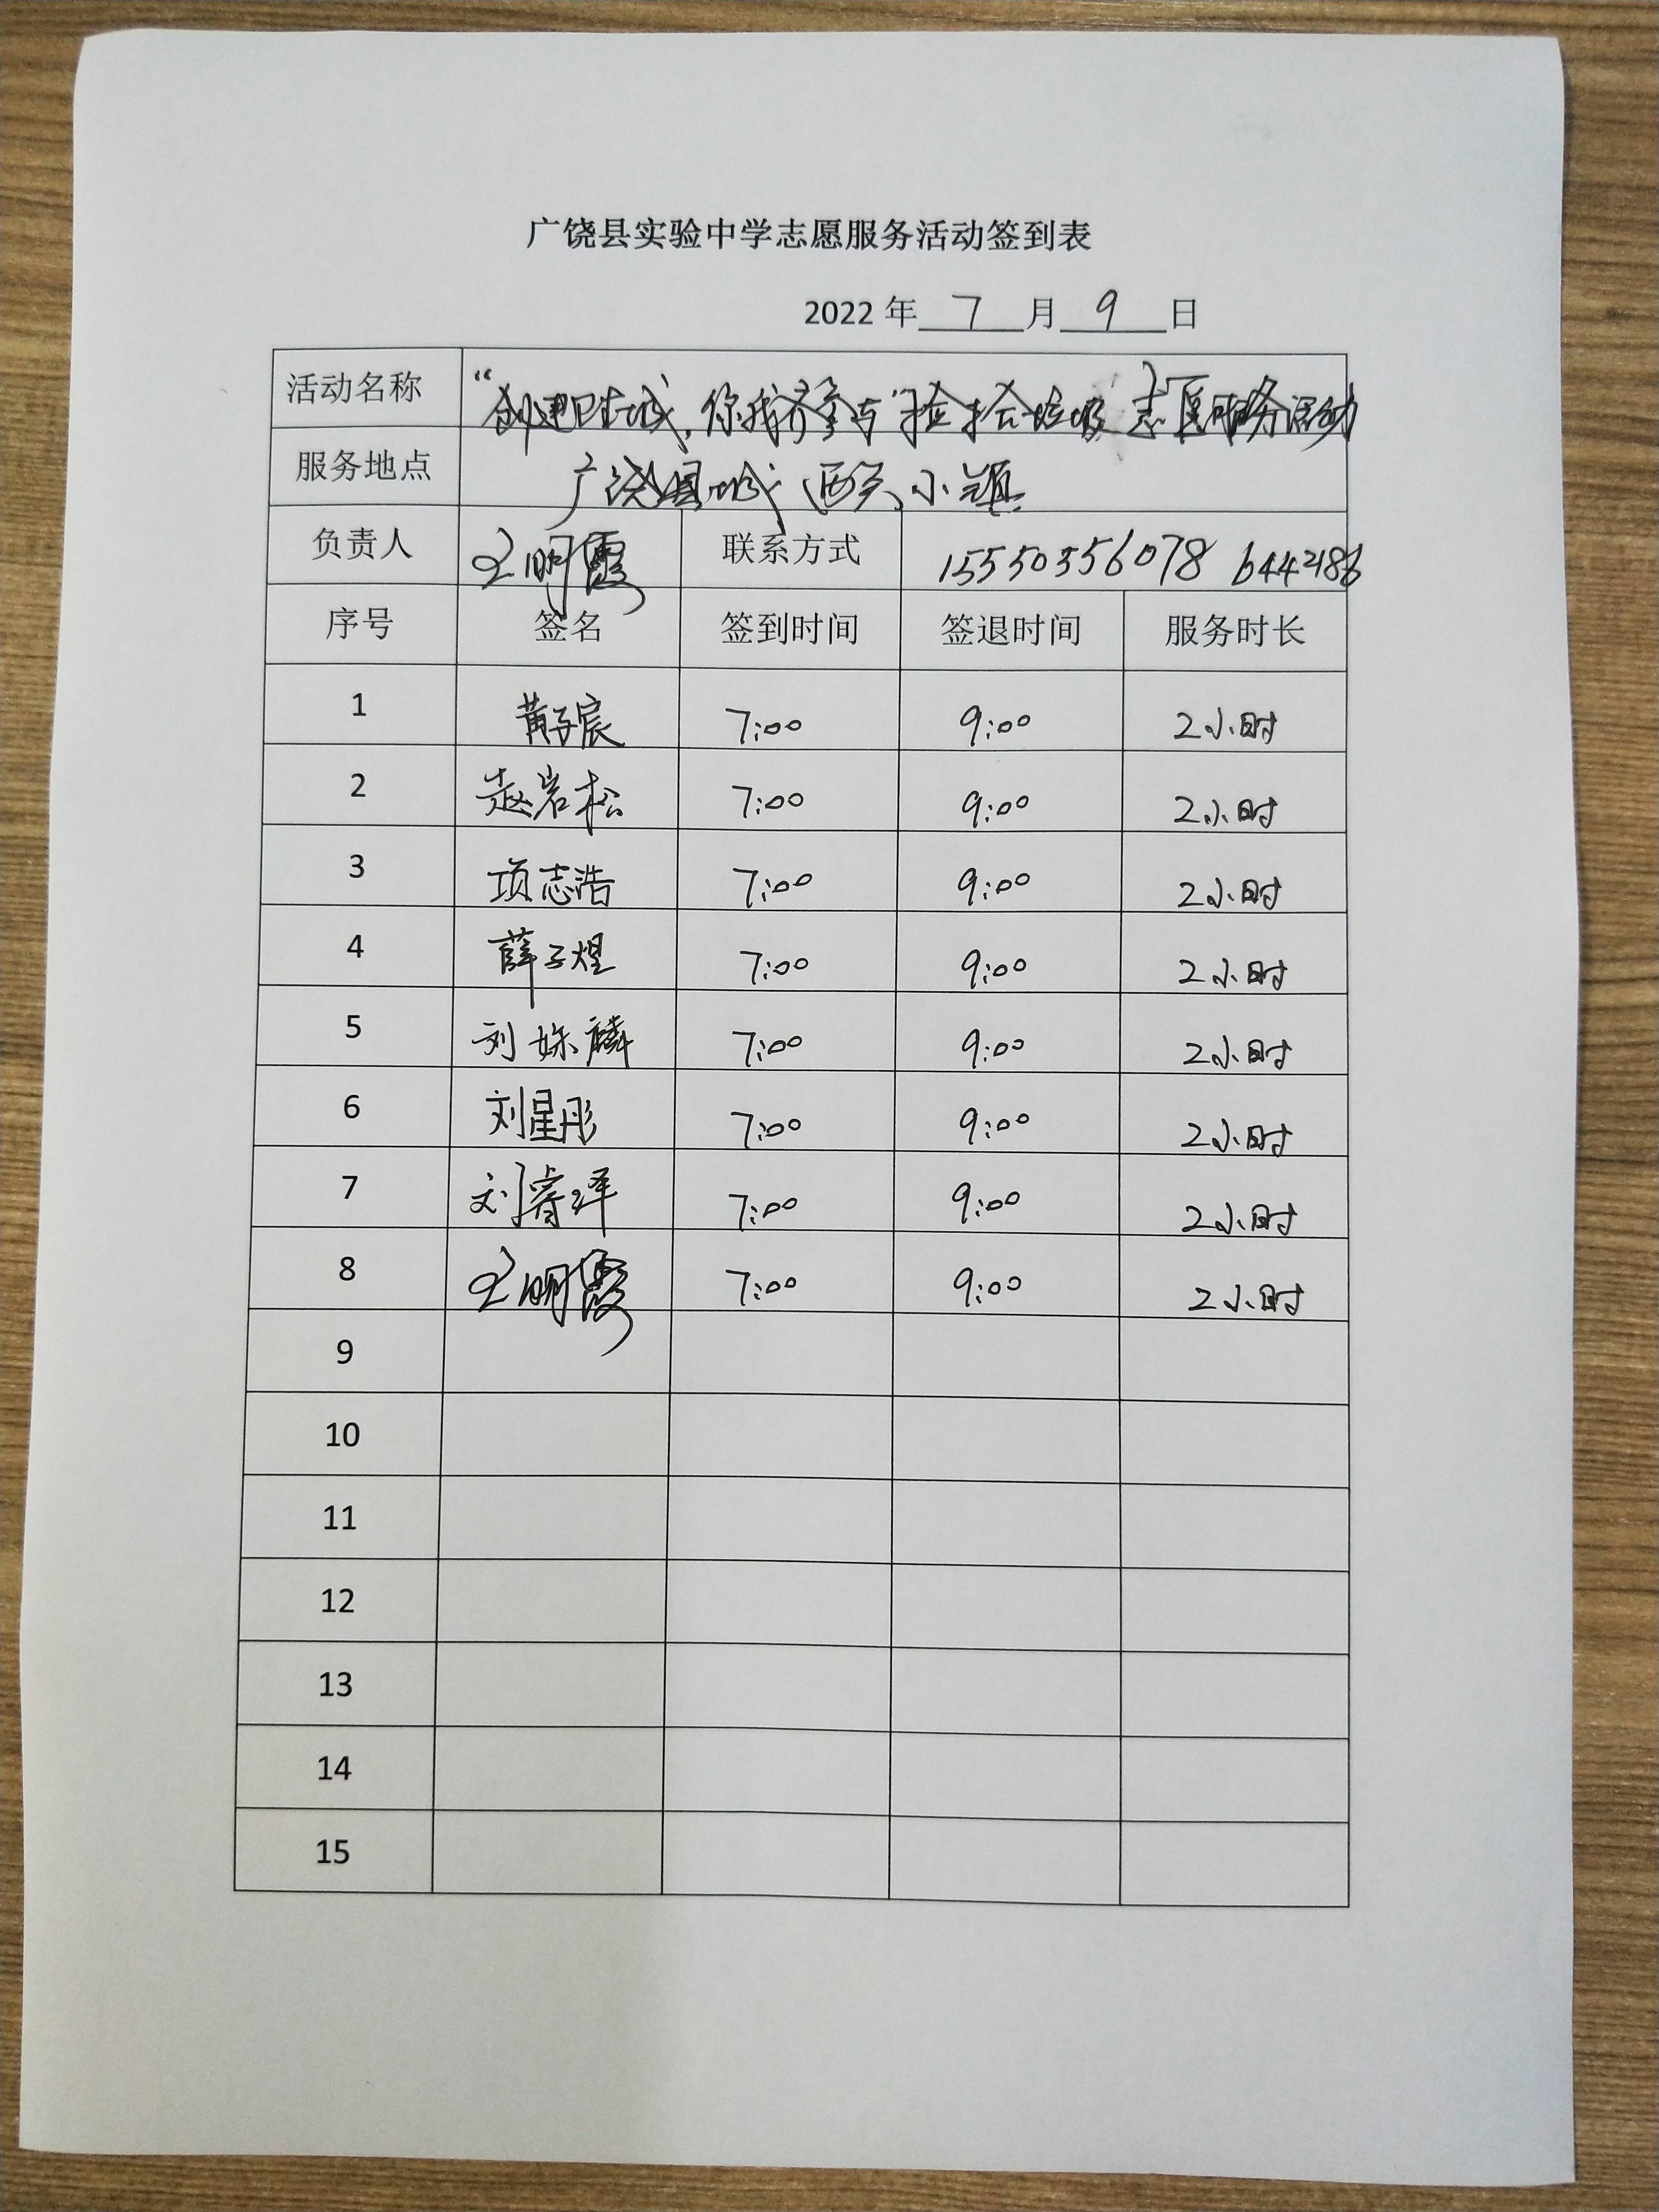 广饶县实验中学志愿服务活动签到表
2022 年 7 月 9 日
活动名称 “创建卫生城,你我齐参与”捡拾垃圾志愿服务活动
服务地点 广饶县城西关小镇
负责人 王明霞 联系方式 15550356078 6442186
序号 签名 签到时间 签退时间 服务时长
1 黄子宸 7:00 9:00 2小时
2 赵岩松 7:00 9:00 2小时
3 项志浩 7:00 9:00 2小时
4 薛子煜 7:00 9:00 2小时
5 刘姝麟 7:00 9:00 2小时
6 刘星彤 7:00 9:00 2小时
7 刘睿泽 7:00 9:00 2小时
8 王明霞 7:00 9:00 2小时
9
10
11
12
13
14
15